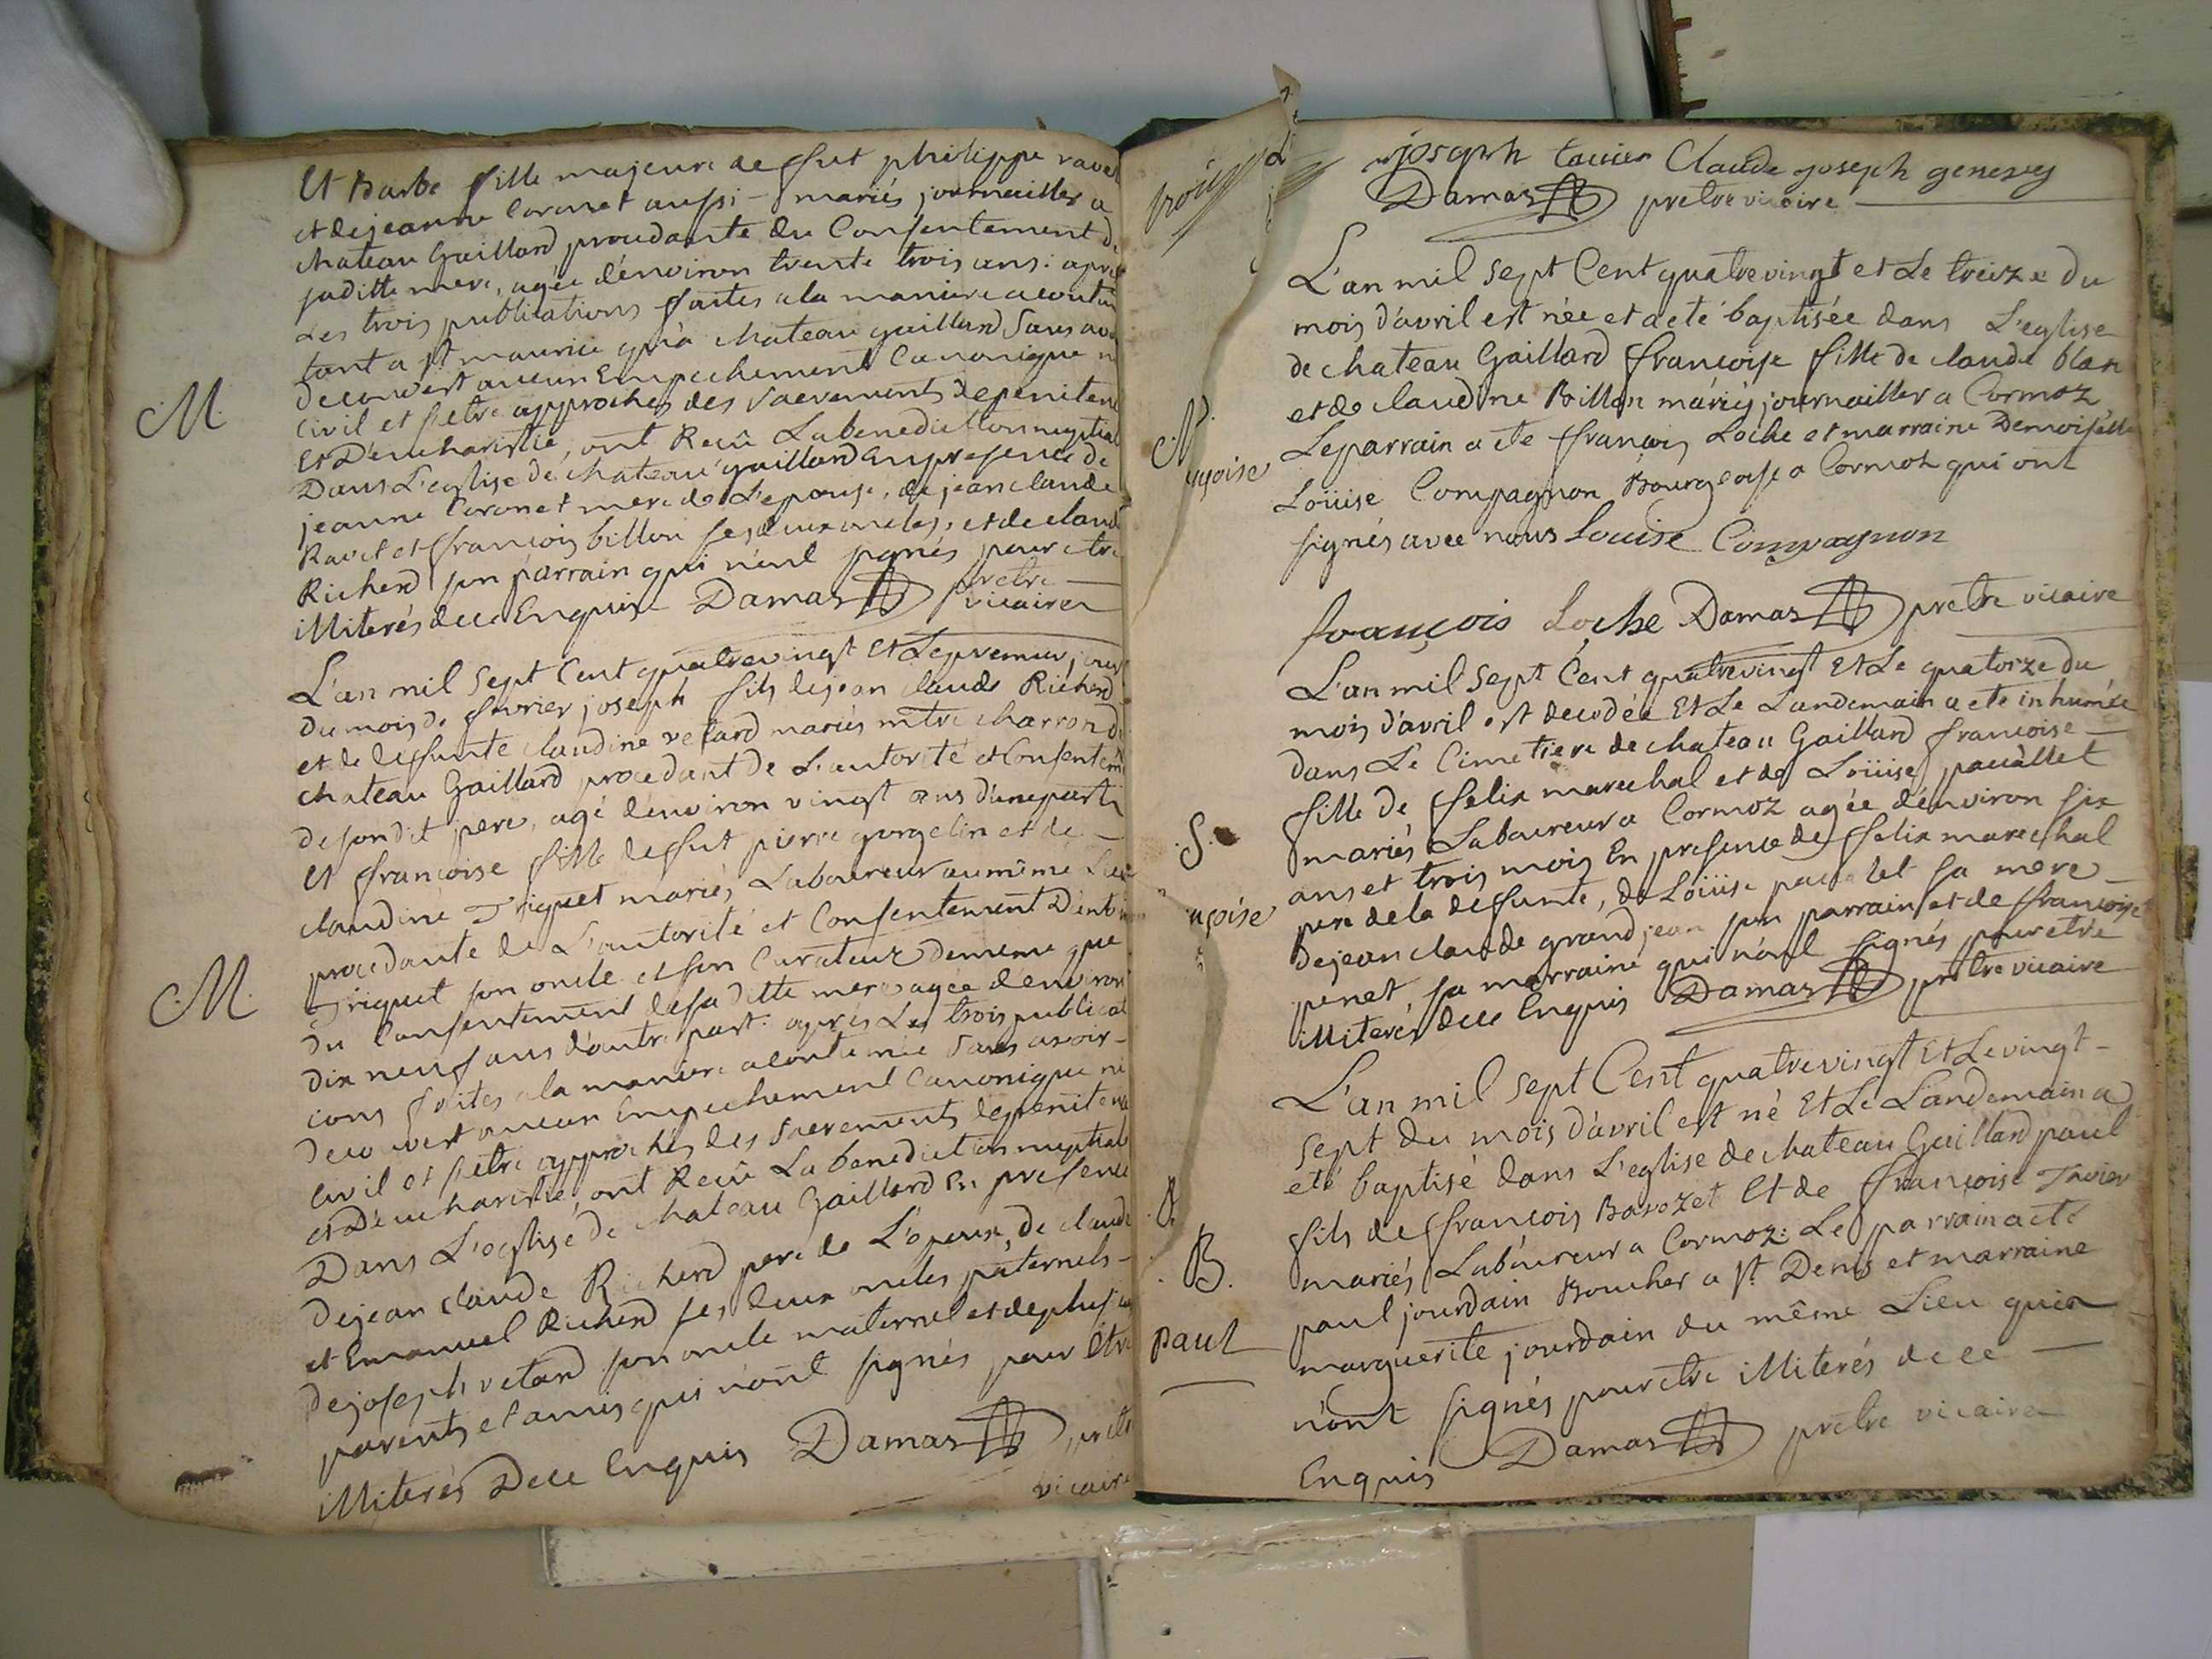 Et Barbe fille majeure de fut philippe ravet
et de jeanne Coronet aussi mariés journailler a
chateau Gaillard procedante du Consentement de
saditte mere, agée d'environ trente trois ans: après
Les trois publications faites a la maniere acoutum
tant a st maurice qu'à chateau gaillard Sans avo
M.
decouvert aucun Empechement Canonique n
civil et s'etre approchés des Sacrements de peniten
Et D'eucharistie, ont Recû La benediction nuptial
Dans L'eglise de chateau gaillard En presence de
jeanne Coronet mere de L'epouse, de jean claude
Ravet et françois billon ses deux oncles, et de claude
Richerd son parrain qui n'ont signés pour etre
illiterés de ce Enquis Damas pretre
vicaire
L'an mil Sept Cent quatrevingt et Le premier jour
du mois de fevrier joseph fils de jean claude Richerd
et de deffunte claudine vetard mariés mtre charron de
chateau Gaillard procedant de L'autorité et Consentemt
de son dit pere, agé d'environ vingt ans d'une part
Et françoise fille de fut pierre gorgelin et de
claudine Triquet mariés Laboureur au même Lieu
M.
procedante de L'autorité et Consentement D'anto
Triquet son oncle et son Curateur de meme que
du Consentement de sa ditte mere agée d'environ
dix neuf ans d'autre part: après Les trois publicat
ions faites a la maniere acoutumée Sans avoir
decouvert aucun Empechement Canonique ni
civil et s'etre approchés des Sacrements de penitence
et D'eucharistie, ont Recû La benediction nuptial
Dans L'eglise de chateau Gaillard En presence
de jean claude Richerd pere de L'epoux, de claude
et Emanuel Richerd ses deux oncles paternels
de joseph vetard son oncle maternel et de plusieurs
parents et amis qui n'ont signés pour être
illiterés De ce Enquis Damas pretre
vicaire
joseph tavier Claude joseph genevey
Damas pretre vicaire
L'an mil Sept Cent quatrevingt et Le treize du
mois d'avril est née et a eté baptisée dans L'eglise
de chateau Gaillard françoise fille de claude blan
et de claudine Billon mariés journailler a Cormoz
N.
Le parrain a ete françois Loche et marraine Demoiselle
nçoise
Loüise Compagnon Bourgeoise a Cormoz qui ont
signés avec nous Louise Compagnon
françois Loche Damas pretre vicaire
L'an mil Sept Cent quatrevingt Et Le quatorze du
mois d'avril est decedée Et Le Landemain a ete inhumée
dans Le Cimetiere de chateau Gaillard françoise
fille de felix marechal et de Loüise pauallet
S.
mariés Laboureur a Cormoz agée d'environ six
ans et trois mois En presence de felix marechal
nçoise
pere de la defunte, de Loüise sa mere
de jean claude grandjean son parrain et de françoise
penet, sa marraine qui n'ont signés pour etre
illiterés de ce Enquis Damas pretre vicaire
L'an mil Sept Cent quatrevingt Et Le vingt
sept du mois d'avril est né Et Le Landemain a
eté baptisé dans L'eglise de chateau Gaillard paul
fils de françois Barozet Et de françoise Tavier
B.
mariés Laboureur a Cormoz: Le parrain a eté
paul jourdain Boucher a St Denis et marraine
paul
marguerite jourdain du même Lieu qui
n'ont signés pour etre illiterés de ce
Enquis Damas pretre vicaire